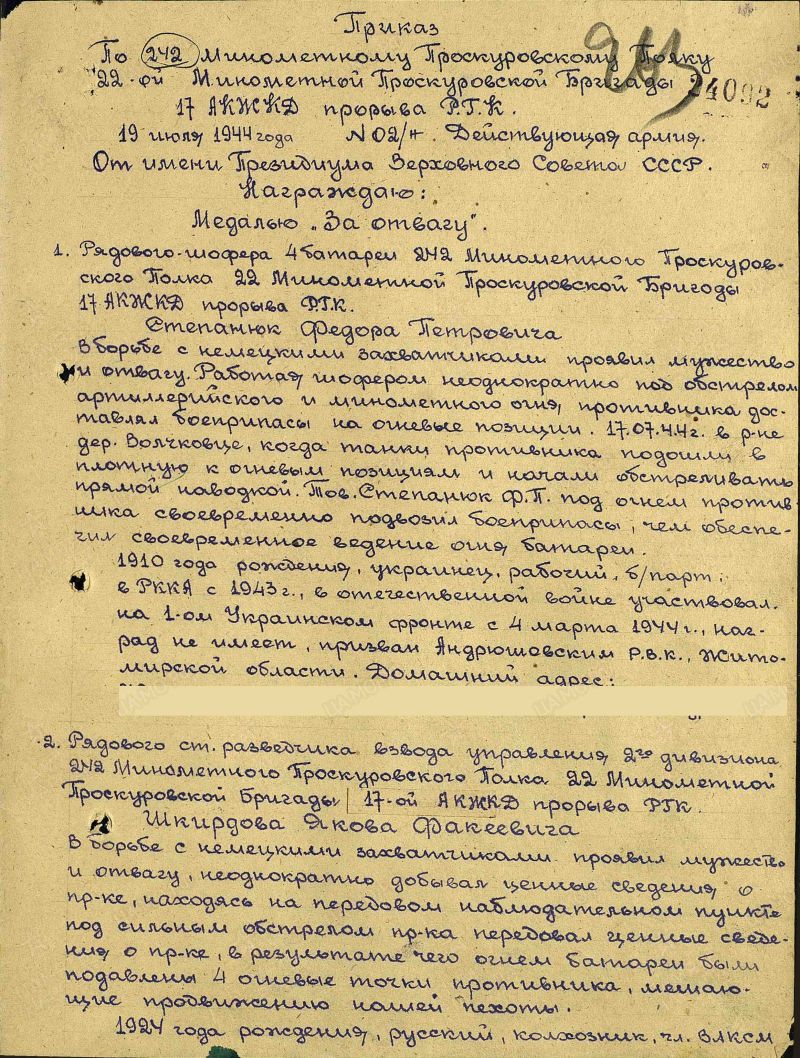 Приказ
По 242 Минометному Проскуровскому Полку
22-ой Минометной Проскуровской Бригады
24092
17 АКЖКД прорыва Р.Г.К.
19 июля 1944 года N 02/н. Действующая армия.
От имени Президиума Верховного Совета СССР.
Награждаю:
Медалью „За отвагу".
1. Рядового-шофера 4 батареи 242 Минометного Проскуров-
ского Полка 22 Минометной Проскуровской Бригады
17 АКЖКД прорыва Р.Г.К.
Степанюк Федора Петровича
В борьбе с немецкими захватчиками проявил мужество
и отвагу. Работая шофером неоднократно под обстрелом
артиллерийского и минометного огня, противника дос-
тавлял боеприпасы на огневые позиции. 17.07.44г. в р-не
дер. Волчковце, когда танки противника подошли в
плотную к огневым позициям и начали обстреливать
прямой наводкой. Тов. Степанюк Ф.П. под огнем против
ника своевременно подвозил боеприпасы, чем обеспе-
чил своевременное ведение огня батареи.
1910 года рождения, украинец, рабочий, б/парт:
в РККА с 1943 г., в отечественной войне участвовал.
на 1-ом Украинском фронте с 4 марта 1944 г., наг-
рад не имеет, призван Андрюшовским Р.В.К., Жито-
мирской области. Домашний адрес:
2. Рядового ст. разведчика взвода управления 2го дивизиона
242 Минометного Проскуровского Полка 22 Минометной
Проскуровской Бригады 17-ой АКЖКД прорыва РГК.
Шкирдова Якова Факеевича
В борьбе с немецкими захватчиками проявил мужество
и отвагу, неоднократно добывал ценные сведения о
пр-ке, находясь на передовом наблюдательном пункте
под сильным обстрелом пр-ка передовал ценные сведе-
ния о пр-ке, в результате чего огнем батареи были
подавлены 4 огневые точки противника, мешаю-
щие продвижению нашей пехоты.
1924 года рождения, русский, колхозник, чл. ВЛКСМ